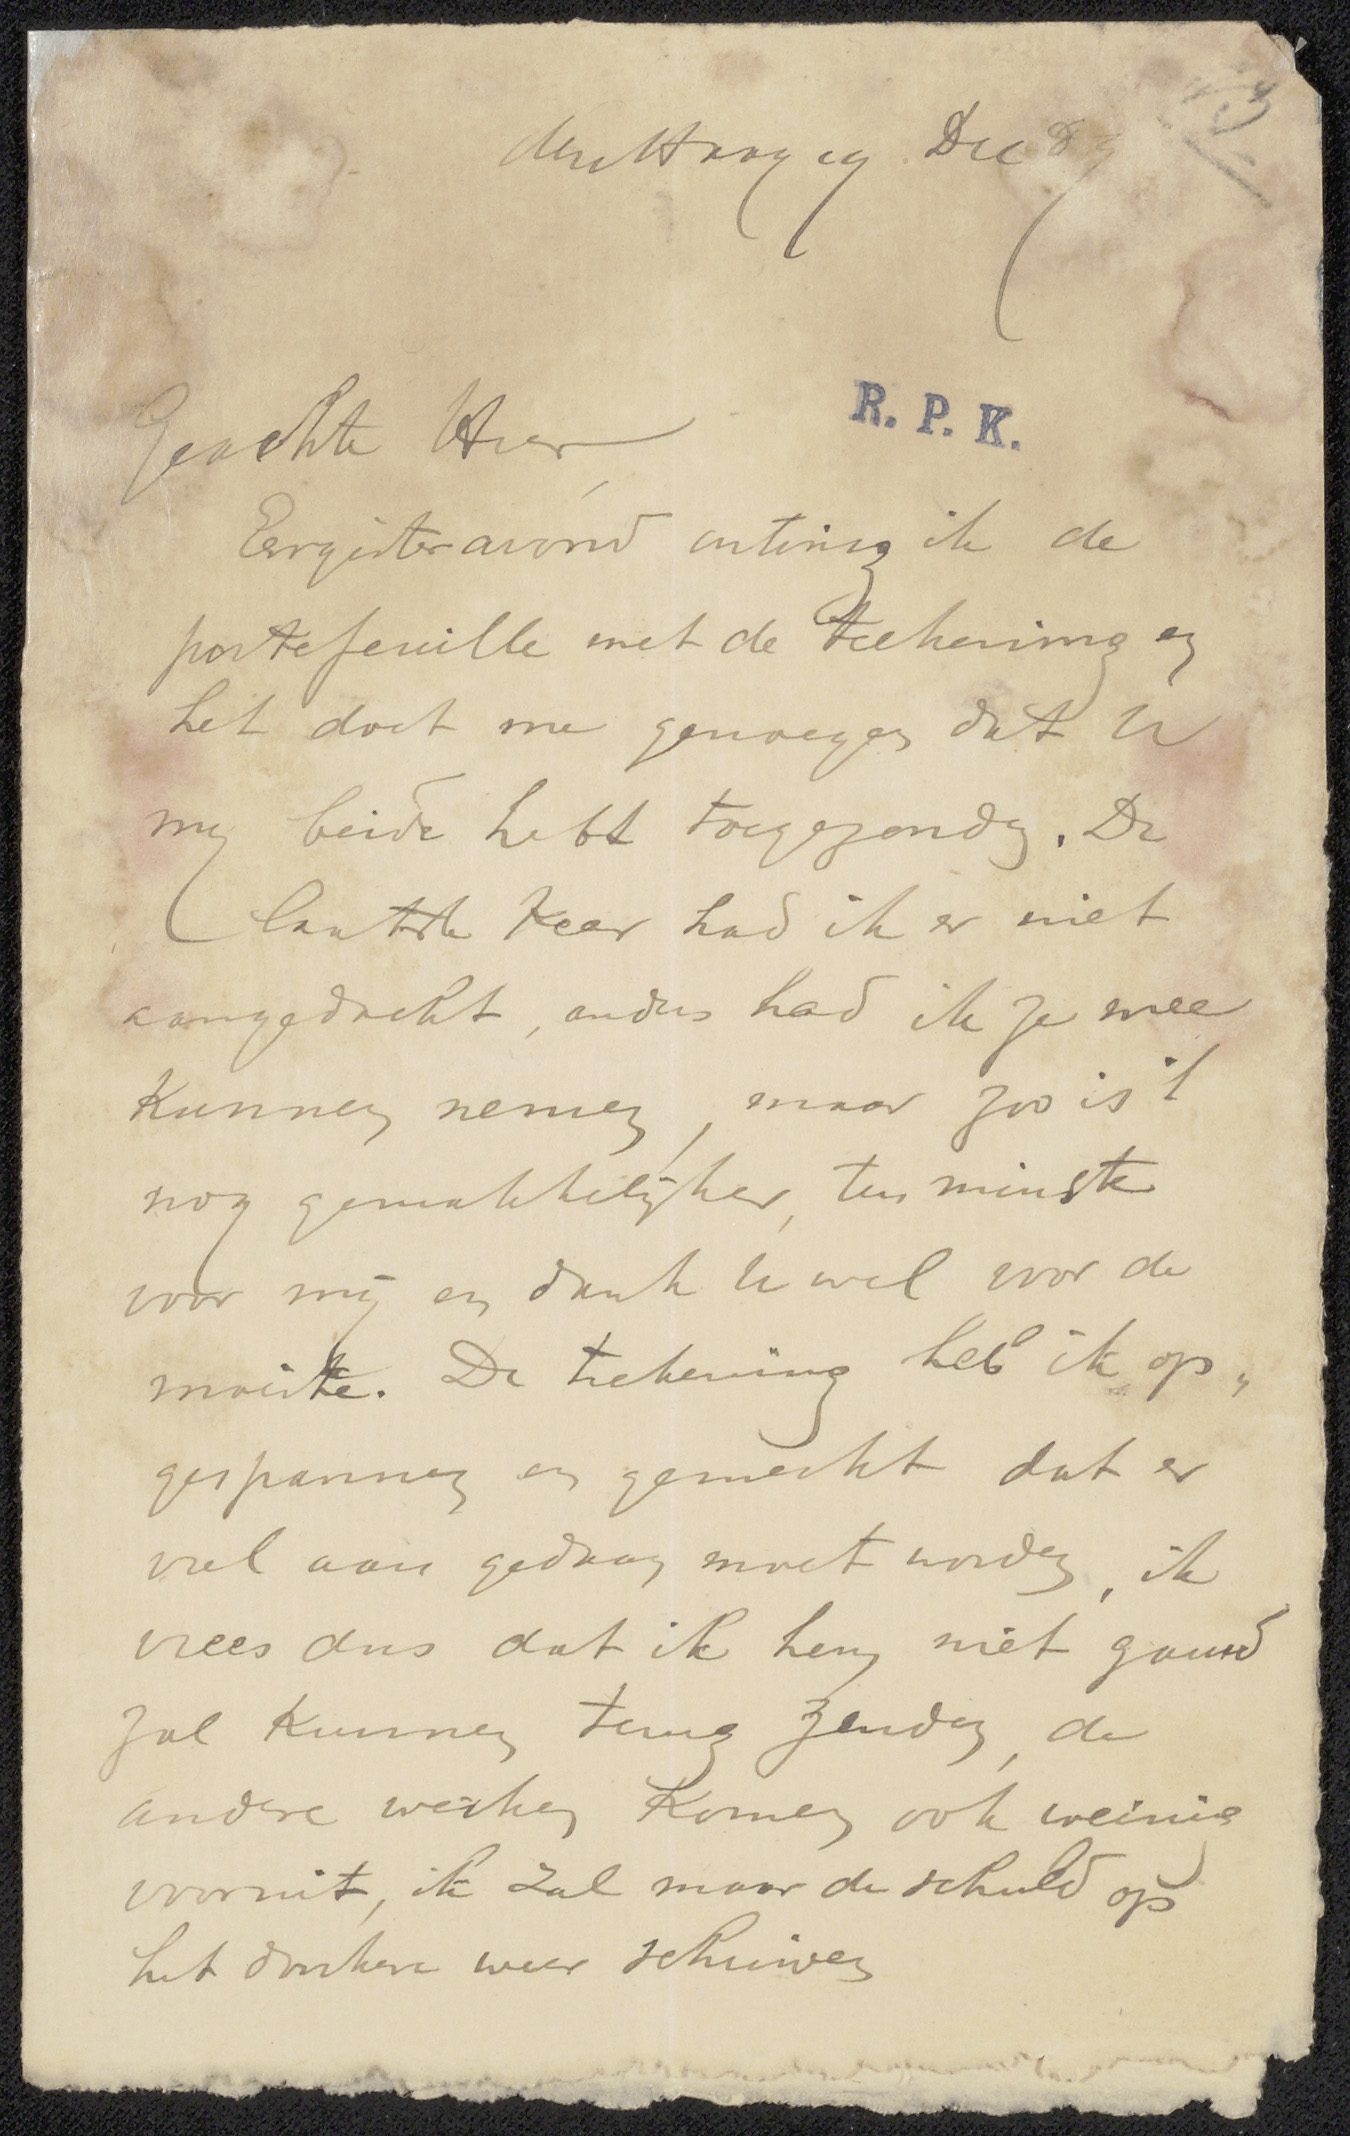 den Haag 19 Dec 89
R. P. K.
Geachte Heer
Eergisteravond ontving ik de
portefeuille met de teekening en
het doet me genoegen dat U
mij beide hebt toegezonden. De
laatste keer had ik er niet
aangedacht, anders had ik ze mee
kunnen nemen, maar zoo is 't
nog gemakkelijker, ten minste
voor mij en dank U wel voor de
moeite. De teekening heb ik op„
gespannen en gemerkt dat er
veel aan gedaan moet worden, ik
vrees dus dat ik hem niet gauw
zal kunnen terug zenden, de
andere werken komen ook weinig
vooruit, ik zal maar de schuld op
het donkere weer schuiven